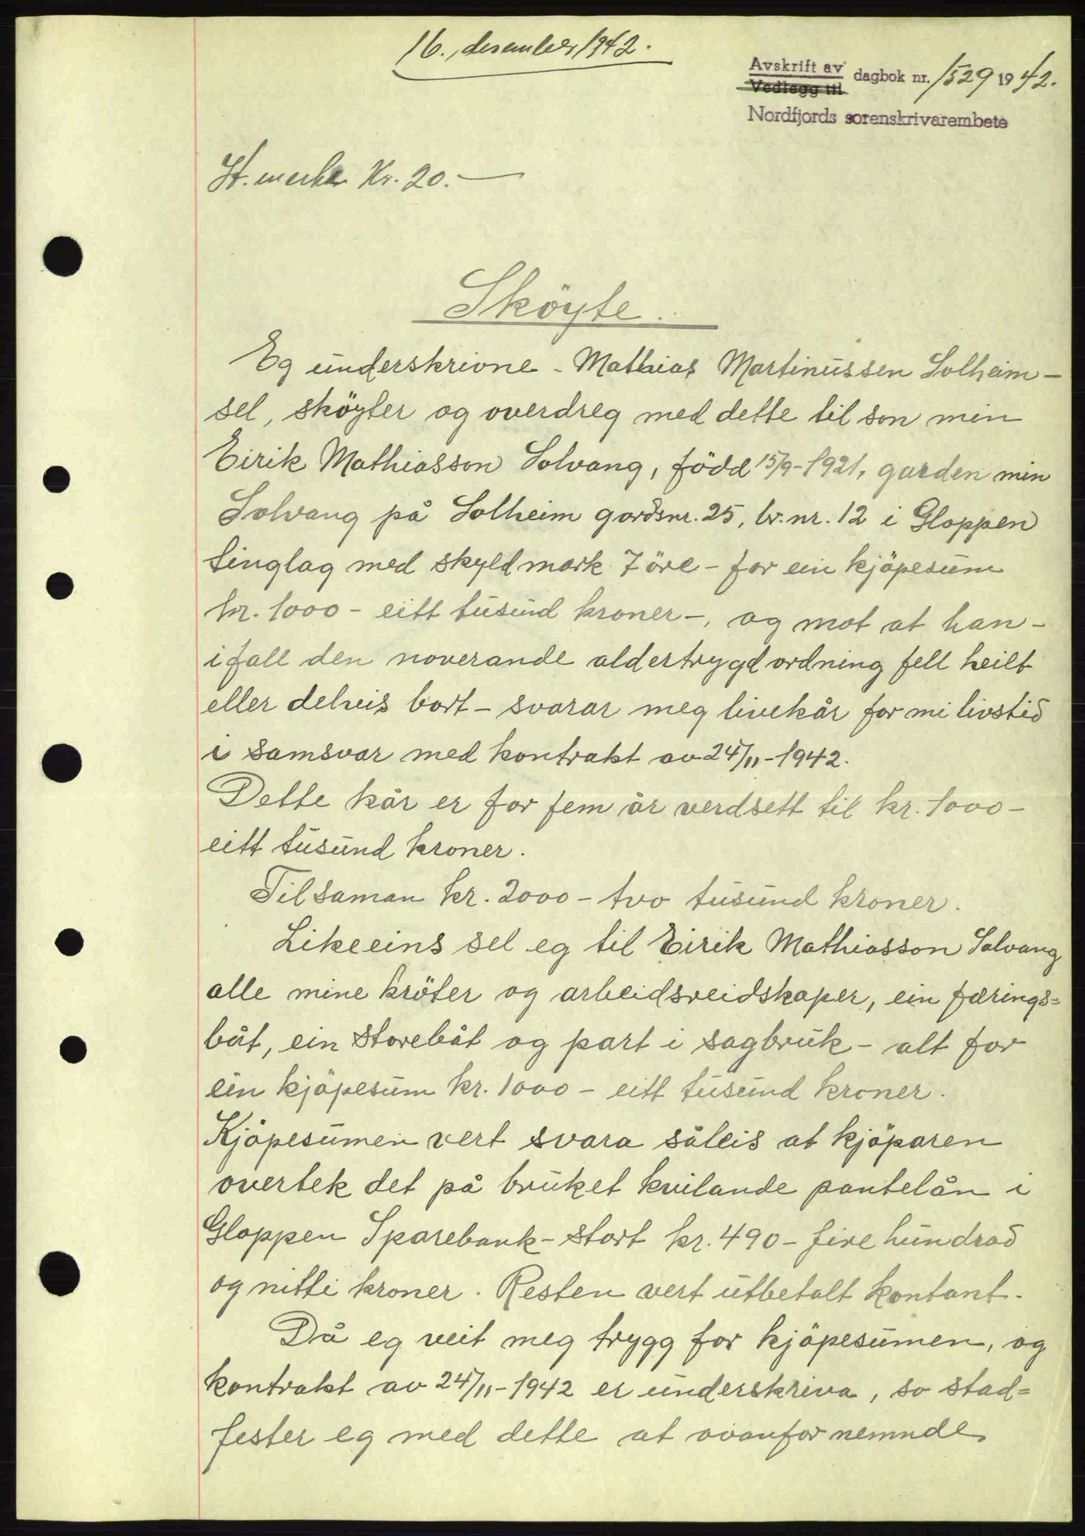 16. desember 1942.
Avskrift av
Vedlegg til
dagbok nr. 1529 1942.
Nordfjords sorenskrivarembete
St.merke Kr. 20.—
Sköyte.
Eg underskrivne - Mathias Martinussen Solheim -
sel, sköyter og overdreg med dette til son min
Eirik Mathiasson Solvang, född 15/9-1921, garden min
Solvang på Solheim gardsnr. 25, br.nr. 12 i Gloppen
tinglag med skyldmark 7 öre - for ein kjöpesum
kr. 1000 - eitt tusund kroner -, og mot at han -
i fall den noverande aldertrygdordning fell heilt
eller delvis bort - svarar meg livekår for mi livstid
i samsvar med kontrakt av 24/11-1942.
Dette kår er for fem år verdsett til kr. 1000 -
eitt tusund kroner.
Tilsaman kr. 2000 - tvo tusund kroner.
Likeeins sel eg til Eirik Mathiasson Solvang
alle mine kröter og arbeidsreidskaper, ein færings=
båt, ein storebåt og part i sagbruk - alt for
ein kjöpesum kr. 1000 - eitt tusund kroner.
Kjöpesumen vert svara såleis at kjöparen
overtek det på bruket kvilande pantelån i
Gloppen Sparebank - stort kr. 490 - fire hundrad
og nitti kroner. Resten vert utbetalt kontant.
Då eg veit meg trygg for kjöpesumen, og
kontrakt av 24/11-1942 er underskriva, so stad=
fester eg med dette at ovanfor nemnde